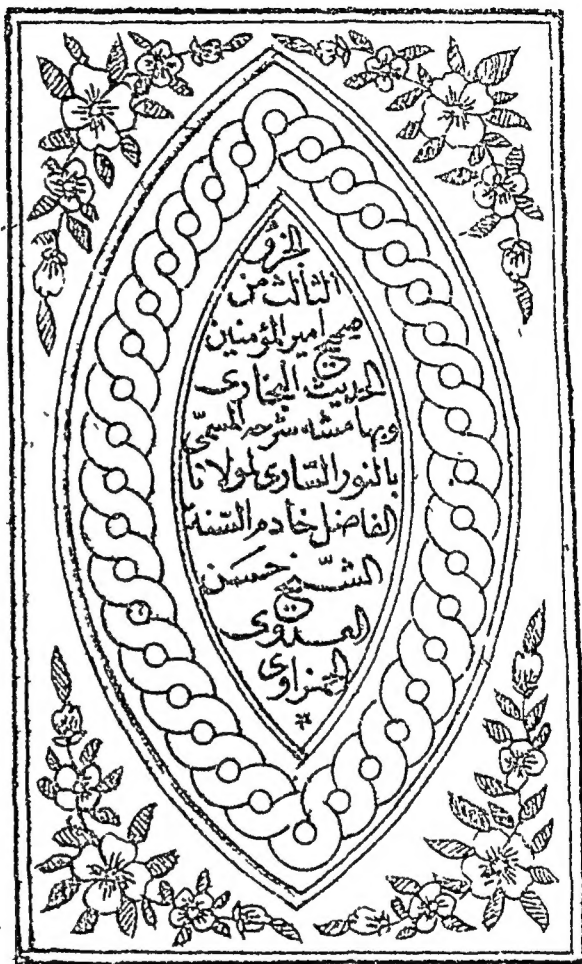 الجزؤ
الثالث من
صحيح امير المؤمنين
فى
الحديث البخارى
وبهامشه شرحه المسمّى
بالنور السّارى لمولانا
الفاضل خادم السّنة
الشيخ حسن
العدوى
الحمزاوى